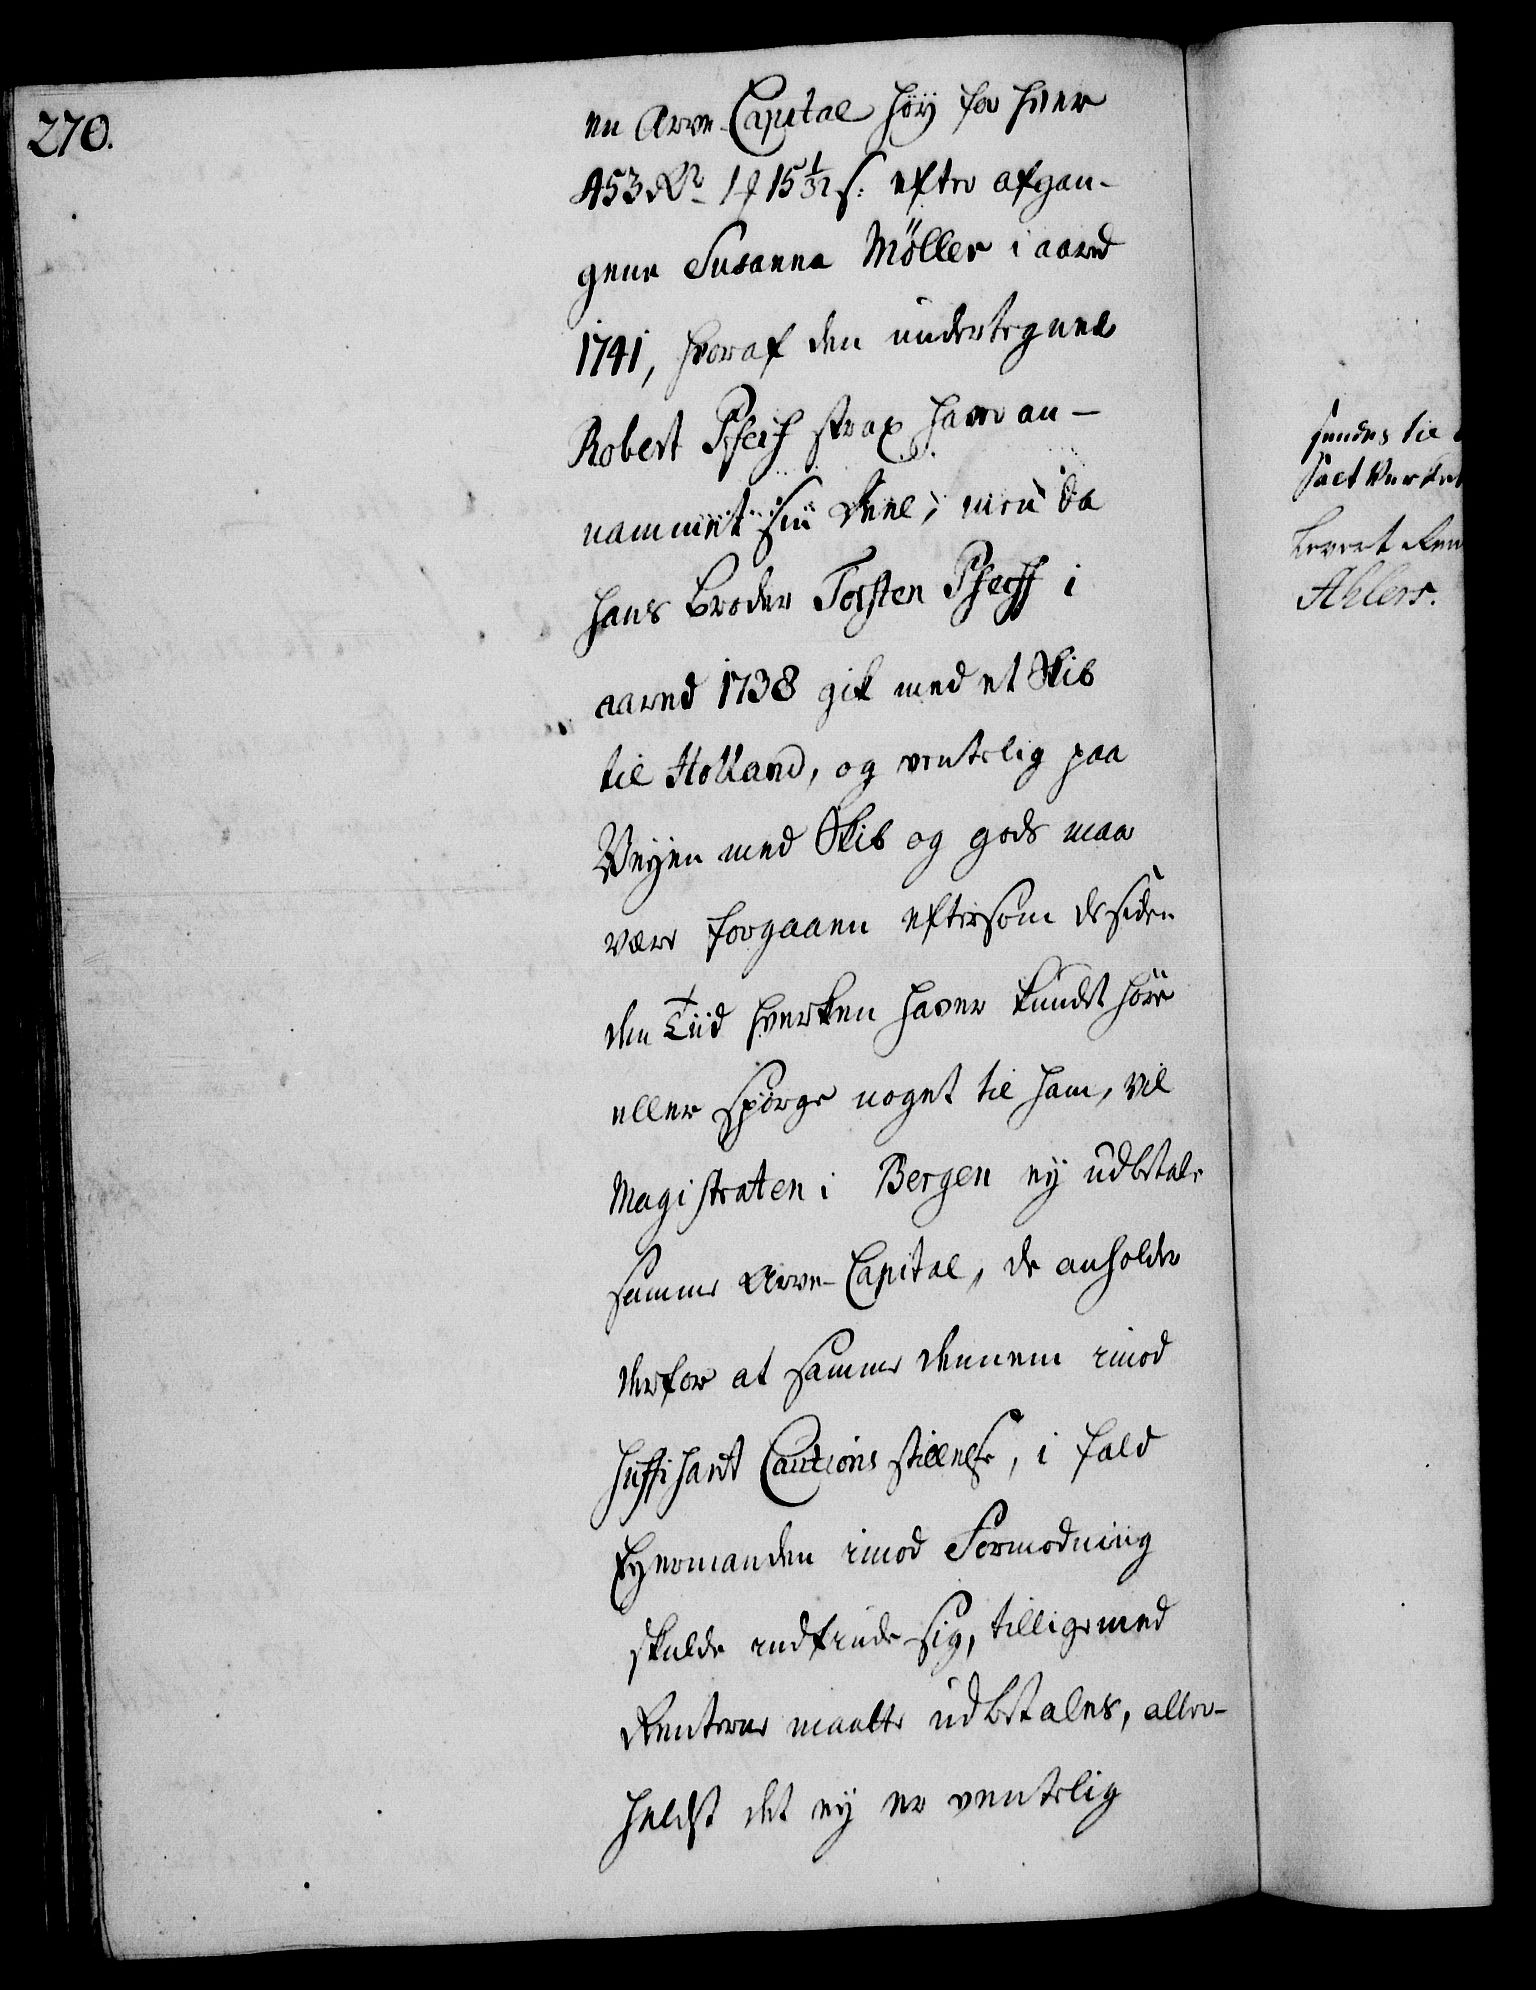 270.
en Arve-Capital høÿ for hver
453 Rd 1 15 1/32 s: efter afgan-
gene Susanna Møller i aared
1741, hvoraf den undertegnede
Robert Pfeiff strax haver an-
nammet sin Deel, men da
hans Broder Torsten Pfeiff i
aared 1738 gik med et Skib
til Holland, og ventelig paa
Veÿen med Skib og gods maa
være forgaaen eftersom de siden
den Tiid hverken haver kundet høre
eller spørge noget til ham, vil
Magistraten i Bergen eÿ udbetale
samme Arve-Capital, de anholder
derfor at samme dennem imod
suffisant Cautions stillelse, i fald
Eyermanden imod Formodning
skulde indfinde sig, tilligemed
Renterne maatte udbetales, aller-
heldst det eÿ er ventelig
sendes til
Salt Verket
leveret
Ahlers.